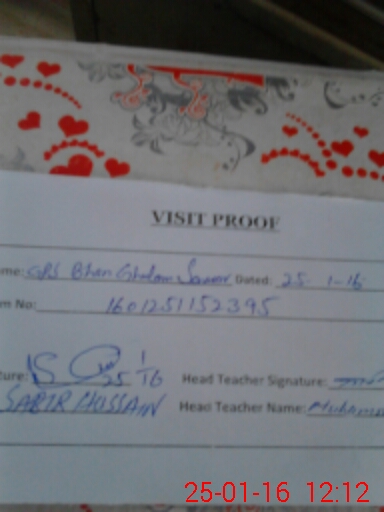 VISIT PROOF
me: GPS Bhen Ghulam Sarwar Dated: 25-1-16
m No: 1601251152395
ture: 25 1 16 Head Teacher Signature:
SABIR HUSSAIN Head Teacher Name: Muhamm
25-01-16 12:12